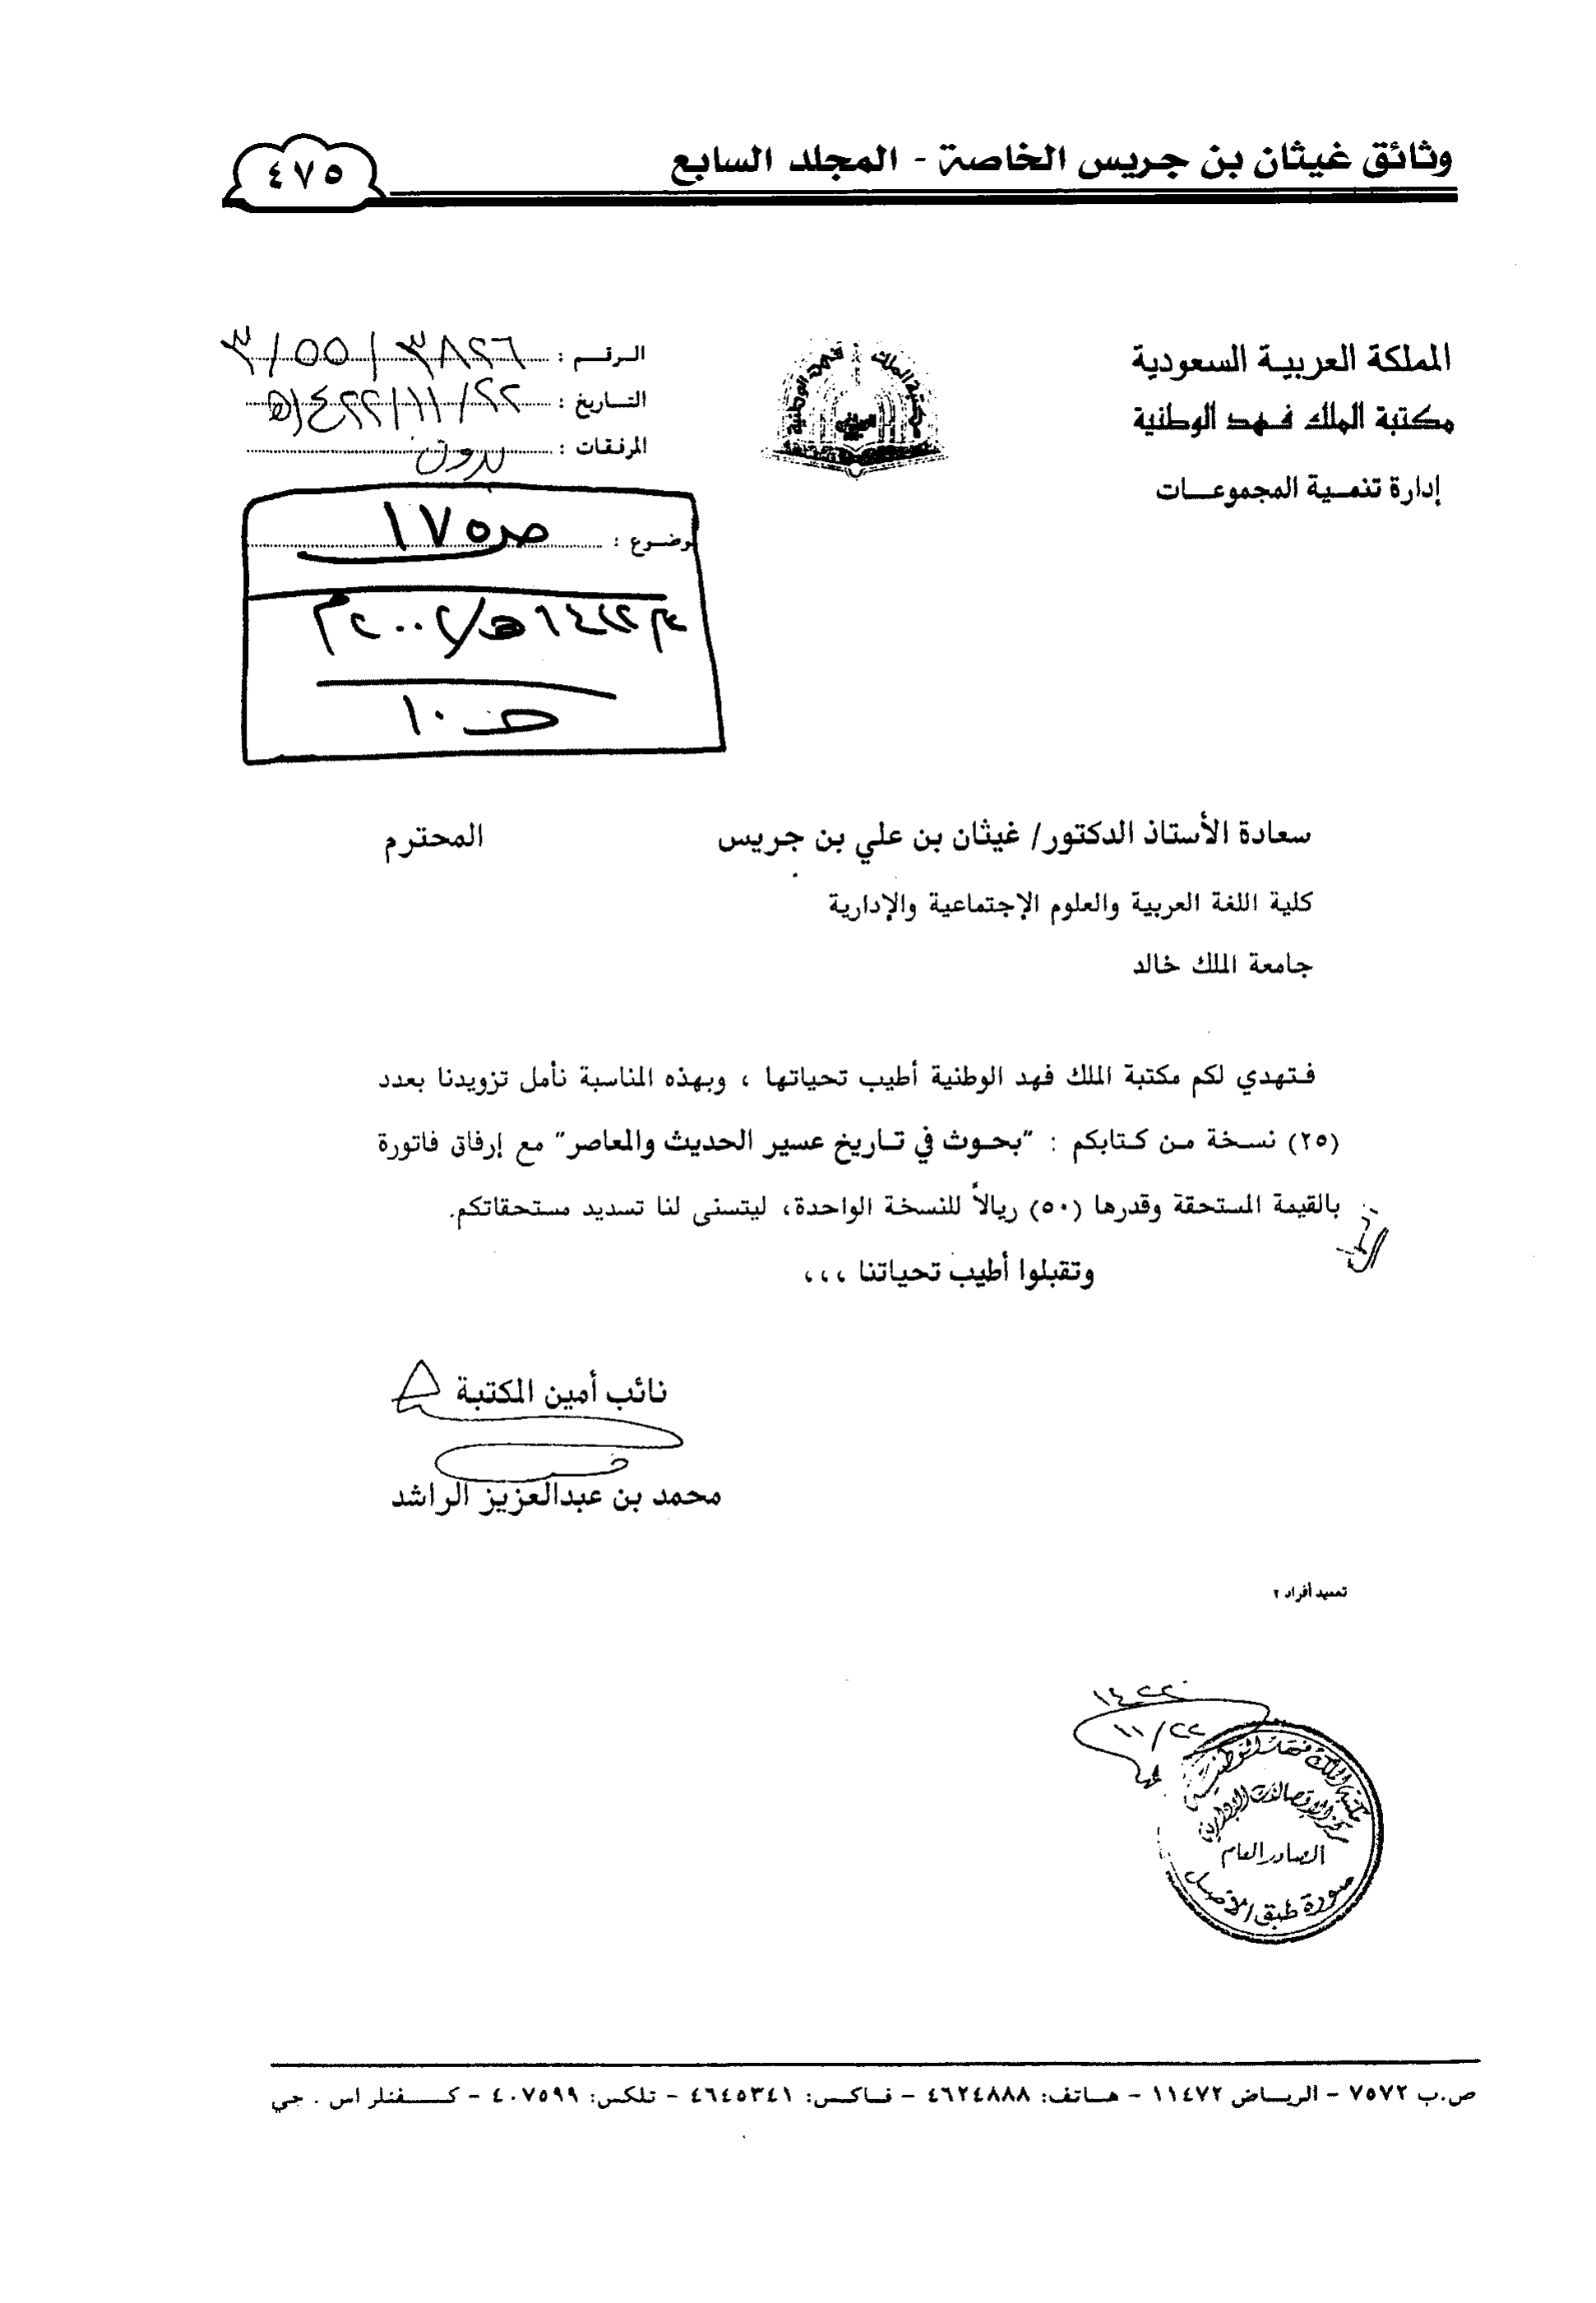 وثائق غيثان بن جريس الخاصة - المجلد السابع
٤٧٥
المملكة العربية السعودية
مكتبة الملك فهد الوطنية
إدارة تنمية المجموعات
الرقم : ٣/٥٥/٣٨٢٦
التاريخ : ٢٢/١١/١٤٢٢هـ
المرفقات : بدون
وضوع : ص ١٧٥
١٤٢٢هـ/٢٠٠٢م
١٠
سعادة الأستاذ الدكتور/ غيثان بن علي بن جريس المحترم
كلية اللغة العربية والعلوم الإجتماعية والإدارية
جامعة الملك خالد
فتهدي لكم مكتبة الملك فهد الوطنية أطيب تحياتها ، وبهذه المناسبة نأمل تزويدنا بعدد
(٢٥) نسخة من كتابكم : "بحوث في تاريخ عسير الحديث والمعاصر" مع إرفاق فاتورة
بالقيمة المستحقة وقدرها (٥٠) ريالاً للنسخة الواحدة، ليتسنى لنا تسديد مستحقاتكم.
وتقبلوا أطيب تحياتنا ،،،
نائب أمين المكتبة
محمد بن عبدالعزيز الراشد
تعميد أفراد ٢
١٤٢٢
١١/٢٢
مكتبة الملك فهد الوطنية
مركز الاتصالات الإدارية
الصادر العام
صورة طبق الأصل
ص.ب ٧٥٧٢ - الرياض ١١٤٧٢ - هاتف: ٤٦٢٤٨٨٨ - فاكس: ٤٦٤٥٣٤١ - تلكس: ٤٠٧٥٩٩ - كفنلر اس . جي